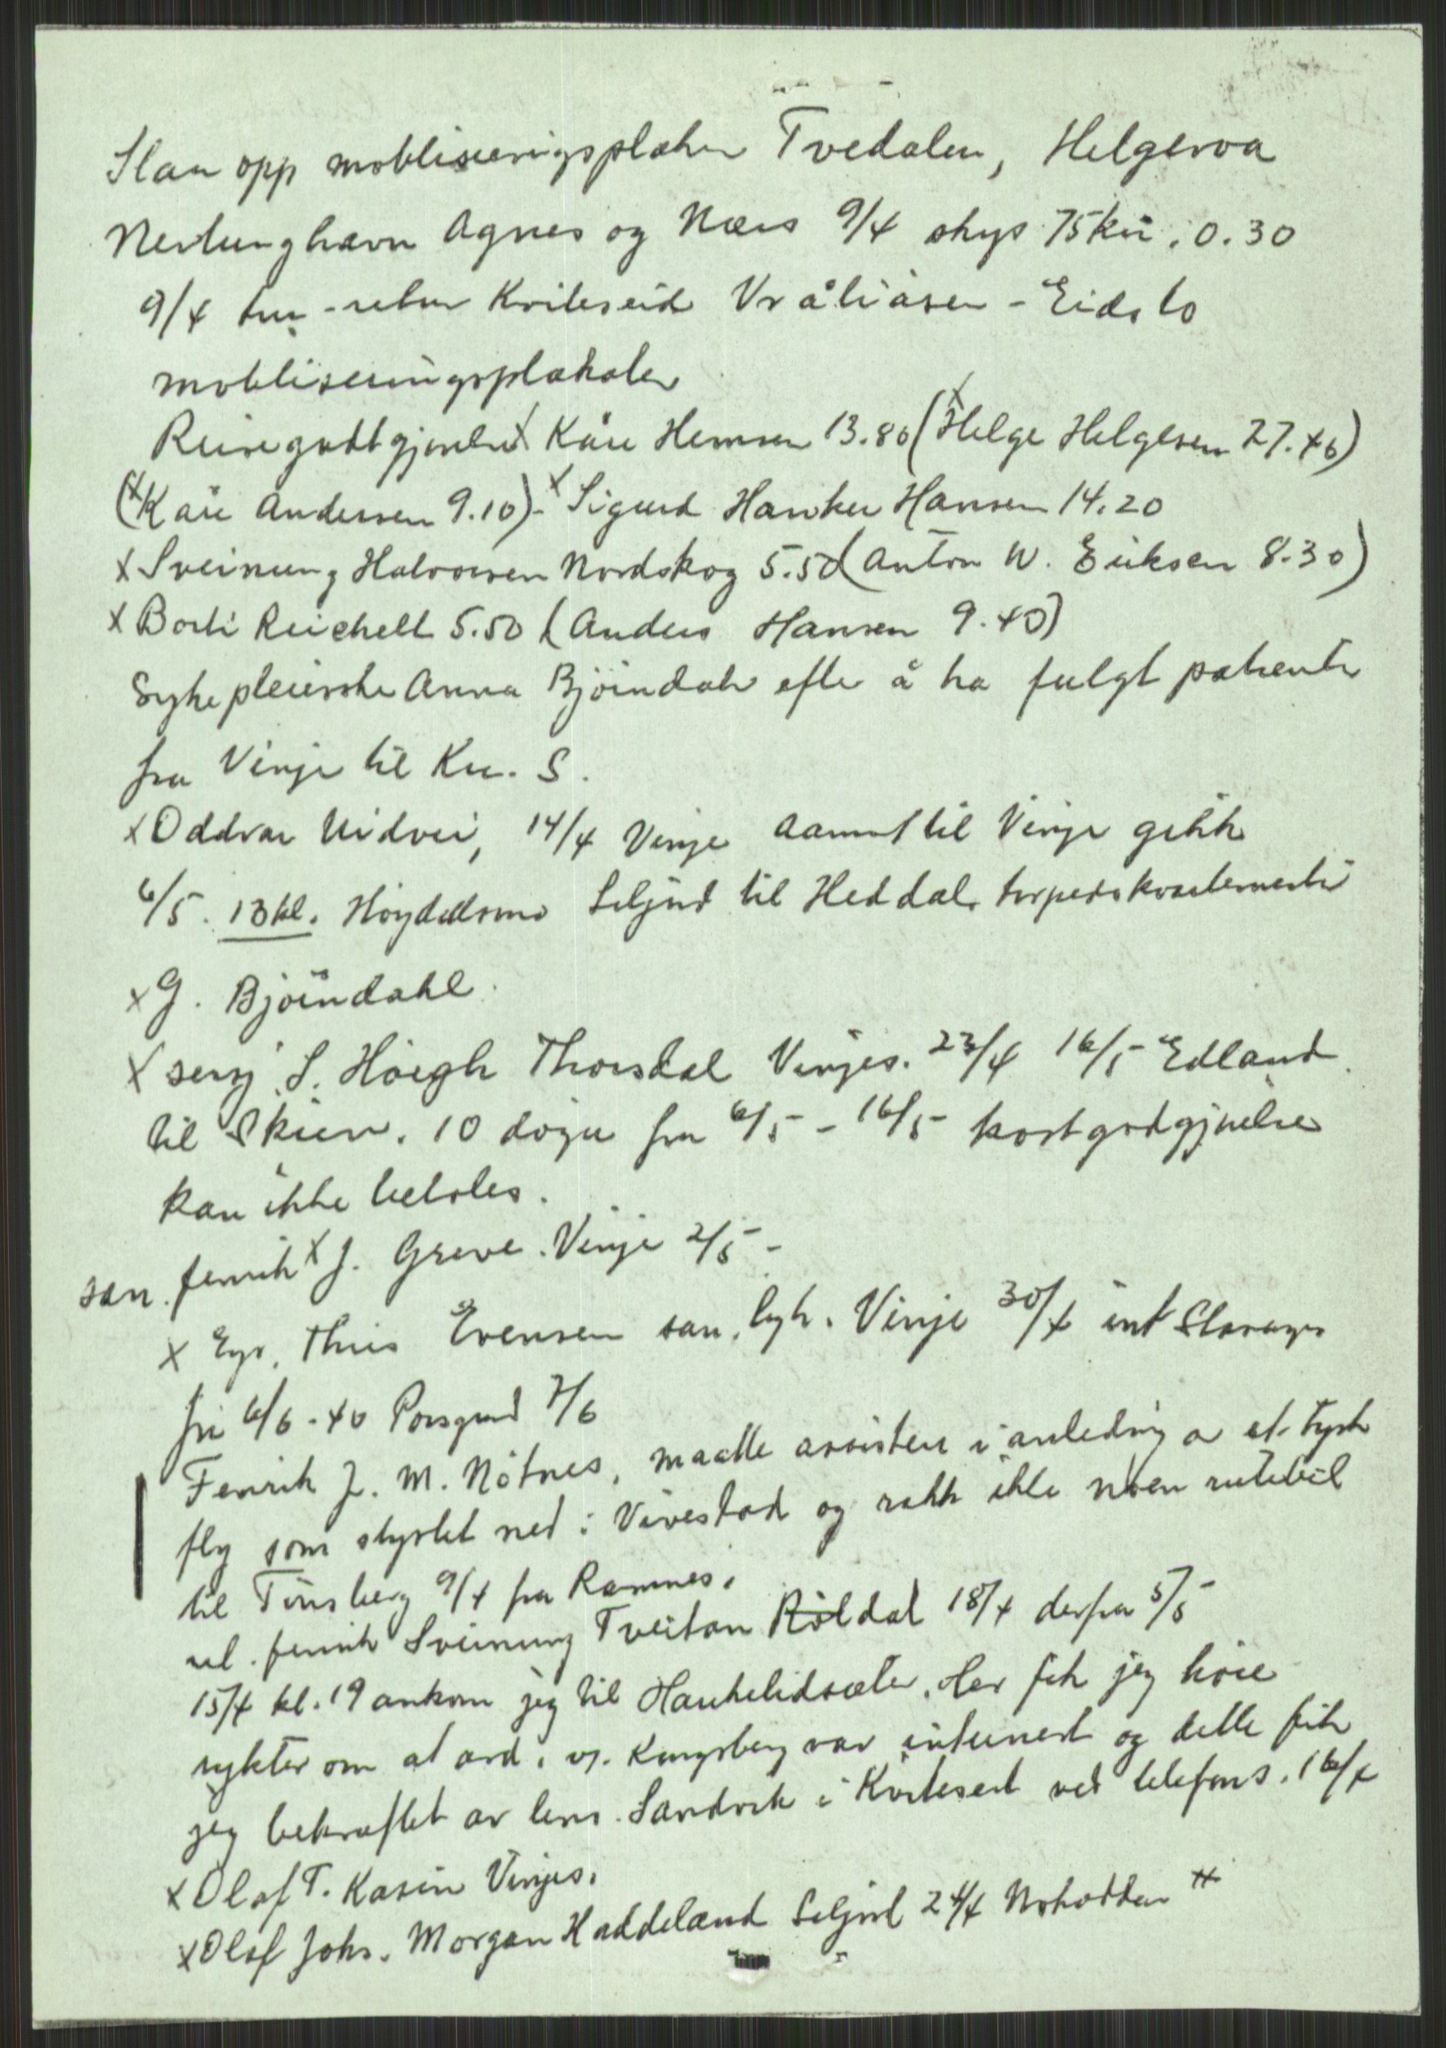 Slaa opp mobliseringsplakater Tvedalen, Helgeroa
Nevlunghavn Agnes og Næs 9/4 skys 75 km. 0.30
9/4 tur-retur Kviteseid Vråliåsen - Eidsto
mobliseringsplakater
Reisegottgjørelse x Kåre Hemsen 13.80 (x Helge Helgesen 27.40)
(x Kåre Andersen 9.10) - x Sigurd Hansen 14.20
x Sveinung Halvorsen Nordskog 5.50 (Anton W. Eriksen 8.30)
x Borti Reichelt 5.50 (Anders Hansen 9.40)
Sykepleierske Anna Bjørndal efter å ha fulgt patienter
fra Vinje til Kr. S.
x Oddvar Uidvei, 14/4 Vinje Aamot til Vinje gikk
6/5. 13 kl. Høydalsmo Seljord til Heddal.
x G. Bjørndahl.
x serj. S. Høegh Thorsdal Vinjes. 23/4 16/5 Edland
til Skien. 10 døgn fra 6/5 - 16/5 kostgodgjørelse
kan ikke betales.
san. fenrik x J. Greve. Vinje 2/5 -
x This Evensen san. Vinje 30/4 int
fri 6/6 - 40 Porsgrund 7/6
Fenrik J. M. Nøtnes, maatte assistere i anledning av et tysk
fly som styrtet ned i Vivestad og rakk ikke noen rutebil
til Tønsberg 9/4 fra Ramnes.
fenrik Sveinung Tveitan Røldal 18/4 derfra 5/5
15/4 kl. 19 ankom jeg til Haukelidsæter. Her fik jeg høre
rykter om at avd. v. Kongsberg var internert og dette fik
jeg bekræftet av lens. Sandvik i Kviteseid ved telefons. 16/4
x Olaf T. Kasin Vinjes.
x Olaf Johs. Morgan Haddeland Seljord 24/4 Notodden